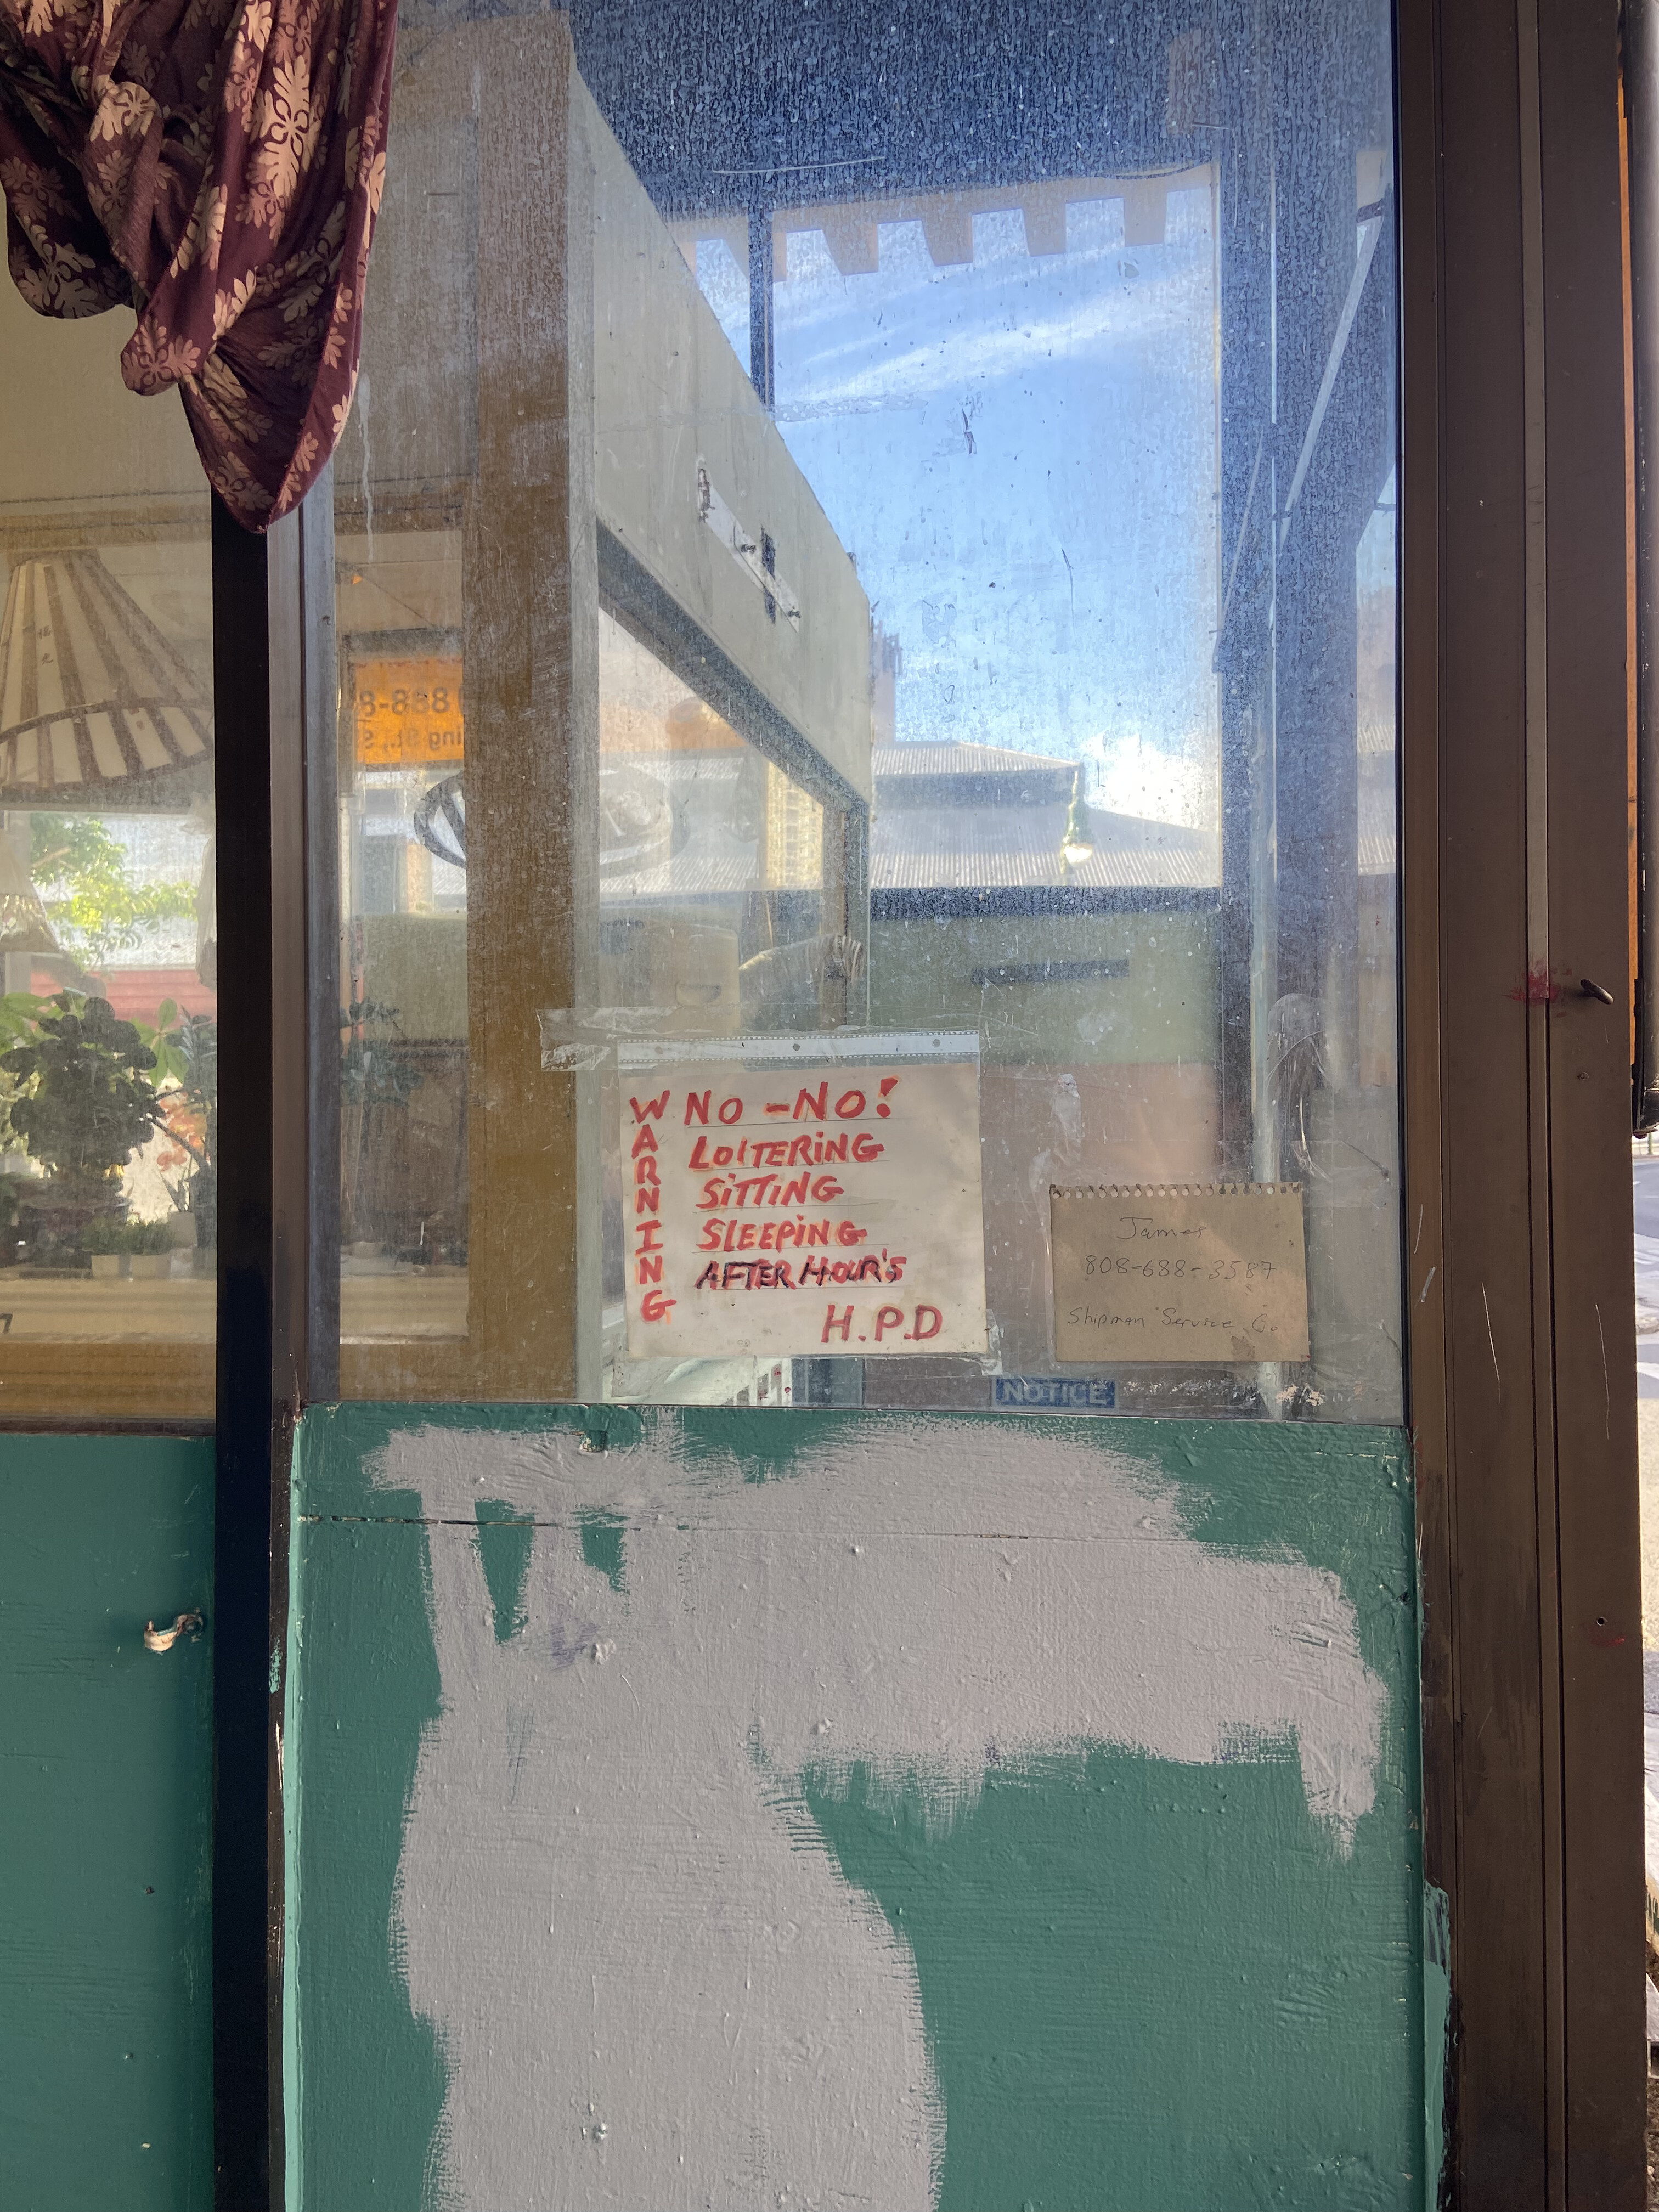 888-8
ing St., S
WARNING
NO-NO!
LOITERING
SITTING
SLEEPING
AFTER HOUR'S
H.P.D
James
808-688-3587
Shipman Service Co
NOTICE